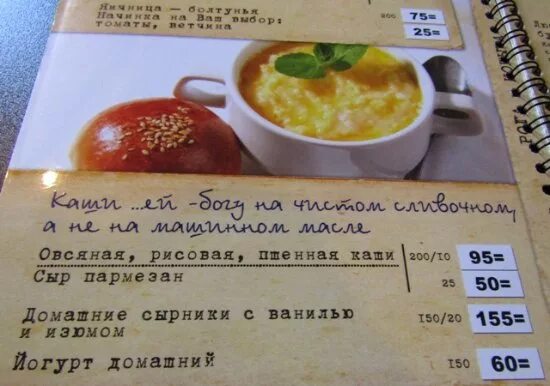 Яичница — болтунья 200 75=
Начинка на Ваш выбор:
томаты, ветчина 25=
Каши ...ей -богу на чистом сливочном,
а не на машинном масле
Овсяная, рисовая, пшенная каши 200/10 95=
Сыр пармезан 25 50=
Домашние сырники с ванилью 150/20 155=
и изюмом
Йогурт домашний 150 60=